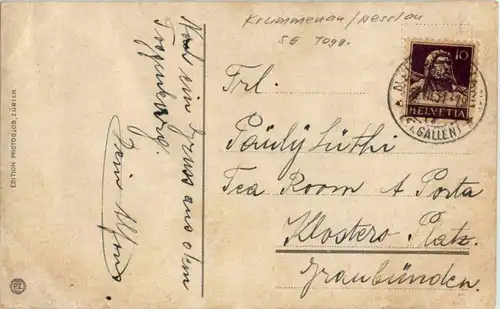 Krummenau / Nesslau
SG Togg.
Noch ein Gruss aus dem
Toggenburg.
Dein Alfons
EDITION PHOTOGLOB, ZÜRICH
10
HELVETIA
(ST. GALLEN)
Frl.
Pauly Lüthi
Tea Room A Porta
Klosters Platz.
Graubünden.